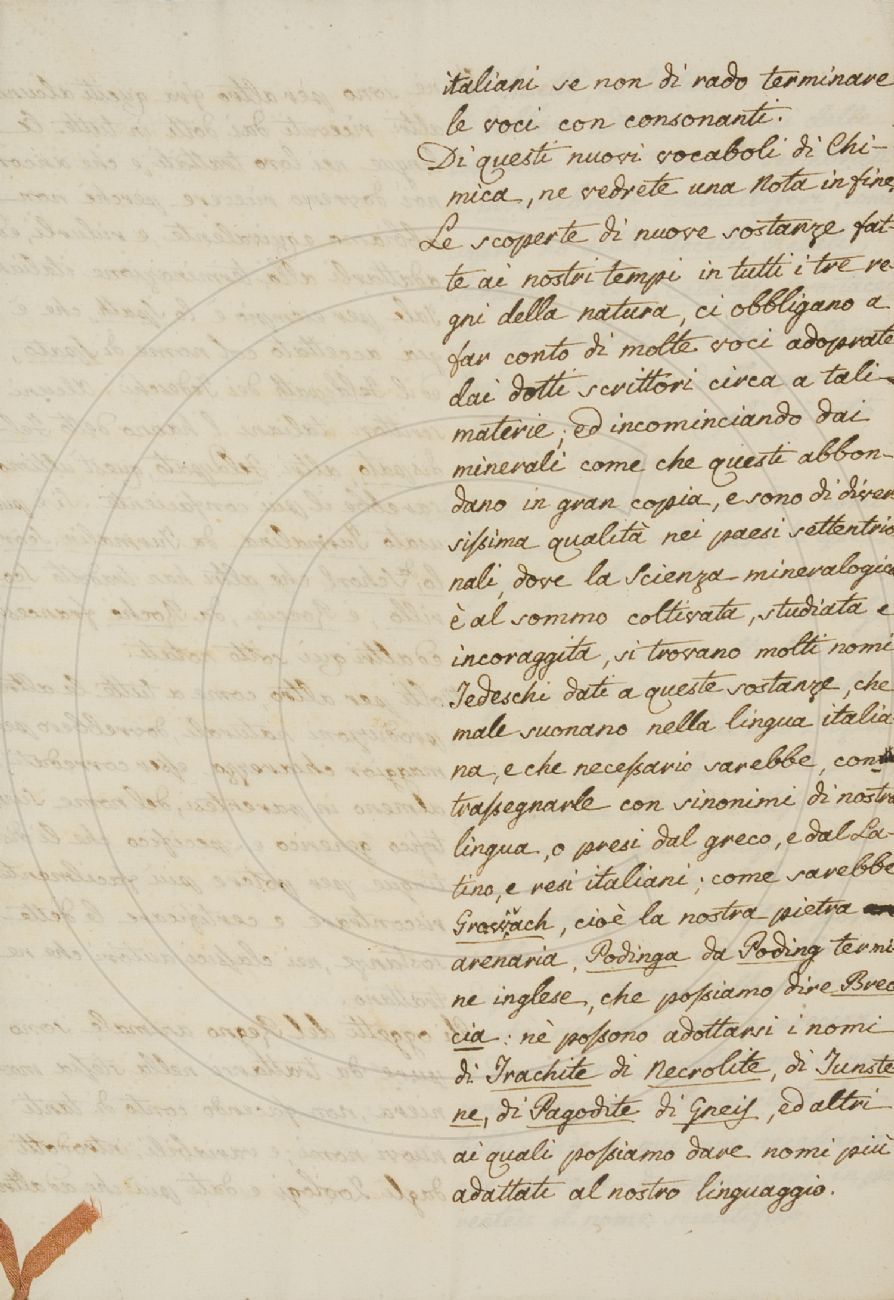 italiani se non di rado terminare
le voci con consonanti.
Di questi nuovi vocaboli di Chi-
mica, ne vedrete una Nota in fine,
Le scoperte di nuove sostanze fat-
te ai nostri tempi in tutti i tre re-
gni della natura, ci obbligano a
far conto di molte voci adoprate
dai dotti scrittori circa a tali
materie; ed incominciando dai
minerali come che questi abbon-
dano in gran copia, e sono di diver
sissima qualità nei paesi settentrio
nali, dove la Scienza mineralogica
è al sommo coltivata, studiata e
incoraggita, si trovano molti nomi
Tedeschi dati a queste sostanze, che
male suonano nella lingua italia-
na, e che necessario sarebbe, con
trassegnarle con sinonimi di nostra
lingua, o presi dal greco, e dal La-
tino, e resi italiani; come sarebbe
cioè la nostra pietra
arenaria, Podinga da Poding termi-
ne inglese, che possiamo dire Brec
cia: nè possono adottarsi i nomi
di Trachite di Necrolite, di Tunste
ne, di Pagodite di Gneis, ed altri
ai quali possiamo dare nomi più
adattati al nostro linguaggio.